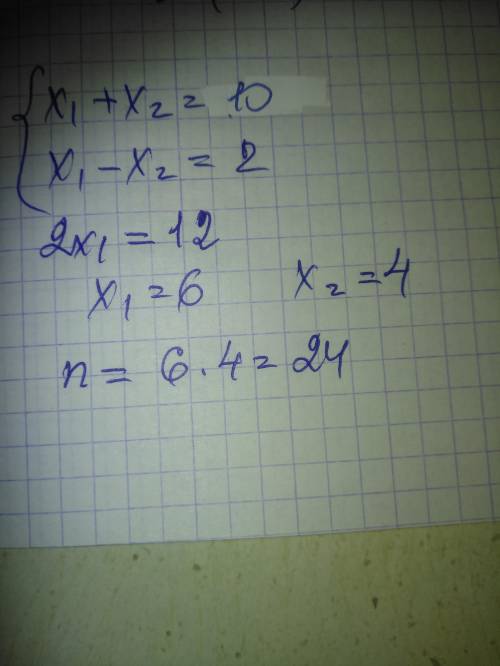 x₁ + x₂ = 10
x₁ - x₂ = 2
2x₁ = 12
x₁ = 6 x₂ = 4
n = 6 · 4 = 24